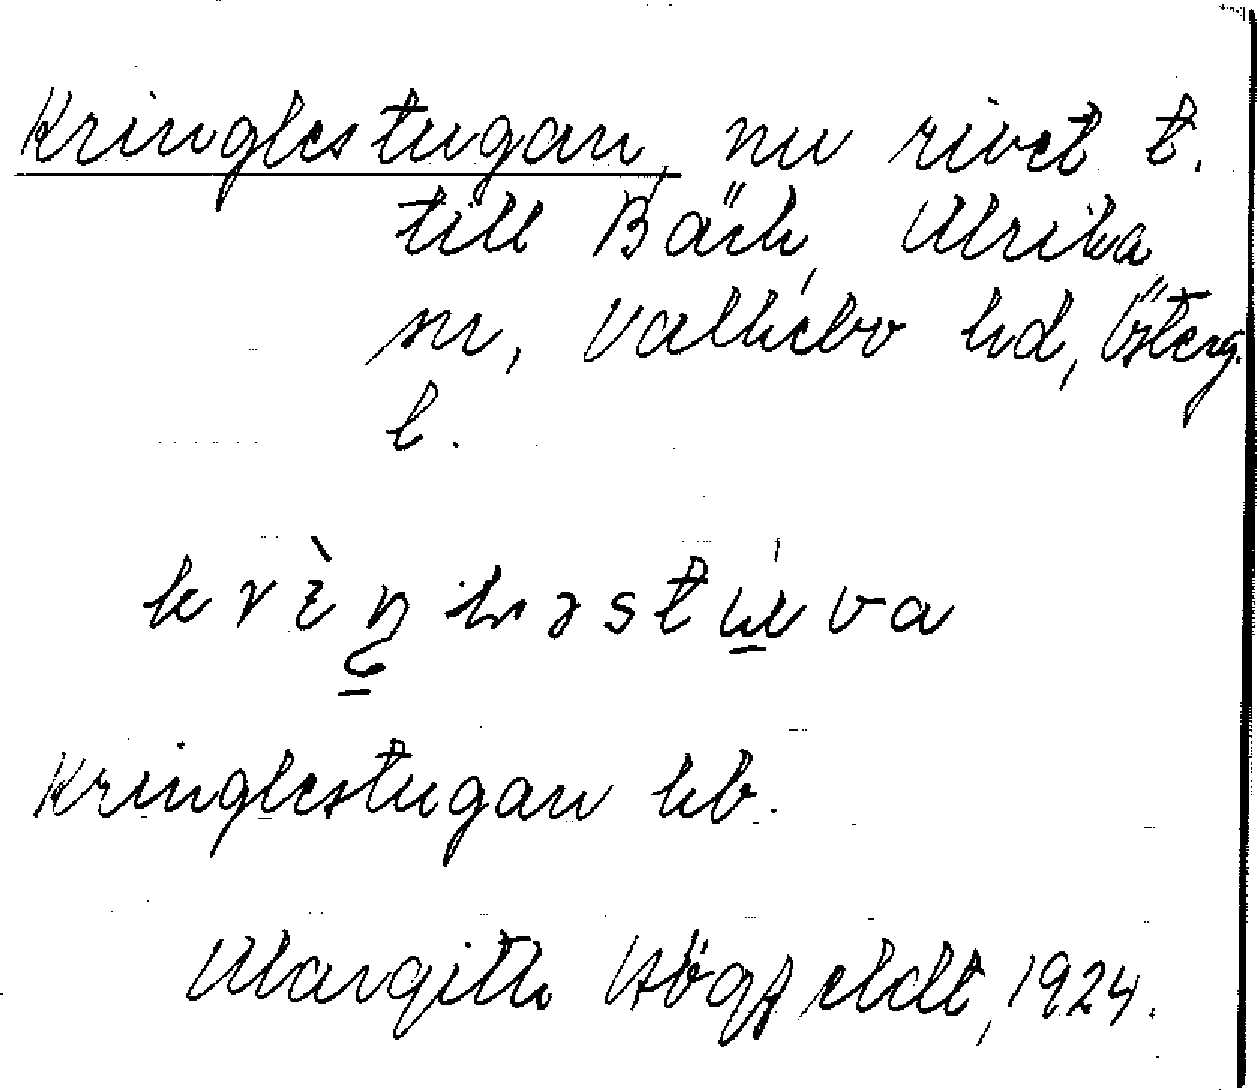 Kringlestugan, nu rivet t.
till Bäck, Ulrika
sn, Valkebo hd, Österg.
l.
Kringlestugan kb.
Margith Högfeldt, 1924.